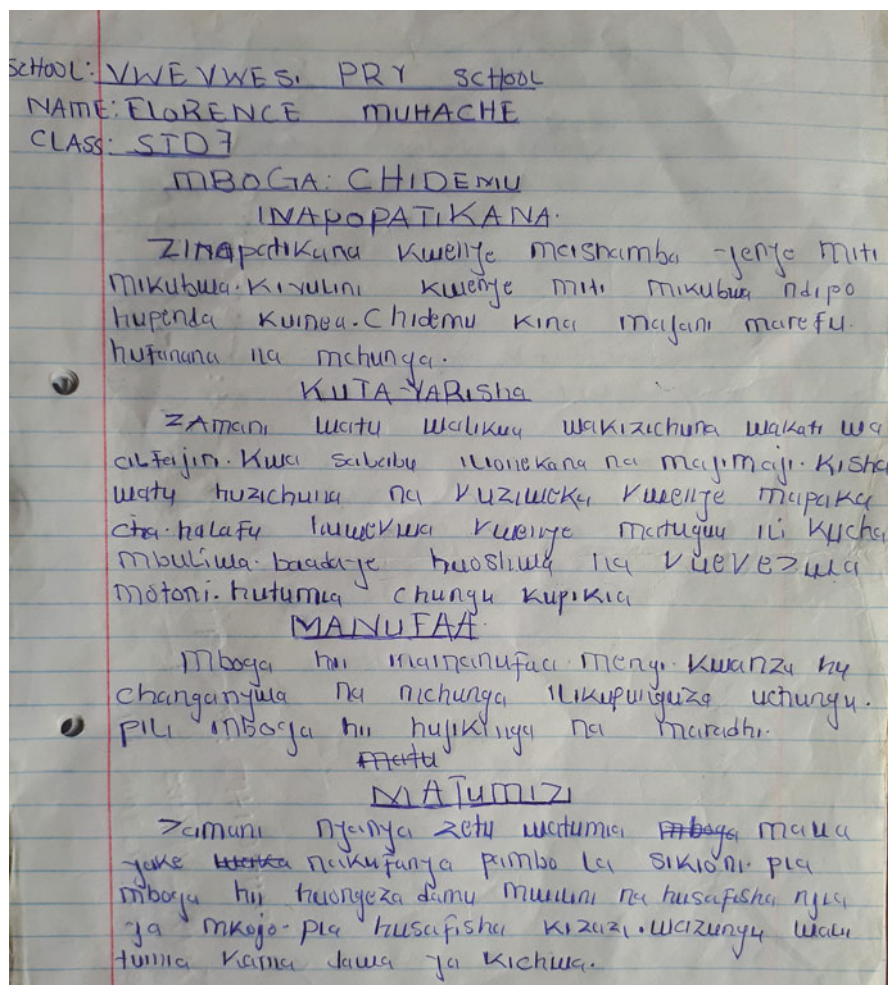 SCHOOL: VWEVWESI PRY SCHOOL
NAME: FLORENCE MUHACHE
CLASS: STD 7
MBOGA: CHIDEMU
INAPOPATIKANA.
ZINApatikana kwenye maishamba yenye miti
mikubwa. Kivulini kwenye miti mikubwa ndipo
hupenda kuinea. Chidemu kina majani marefu.
hufanana na mchunga.
KUTAYARISha
ZAmani watu walikuy wakizichuna wakati wa
alfajiri. Kwa sababu ilionekana na majimaji. Kisha
watu huzichuna na kuziweka kwenye mapaka
cha. halafu kwenye matuguu ili kucha
mbuliwa. baadaye huoshwa na
motoni. hutumia chungu kupikia
MANUFAA.
Mboga hii mengi. Kwanza hu
changanywa na mchunga uchungu.
pili mboga hii hujikinga na maradhi.
matu
MATUMIZI
Zamani nyanya zetu watumia mboga maua
yake naikufanya pambo la sikioni. pia
mboga hii huongeza damu mwilini na husafisha njia
ya mkojo. pia husafisha kizazi. wazungu wali
tumia kama dawa ya kichwa.